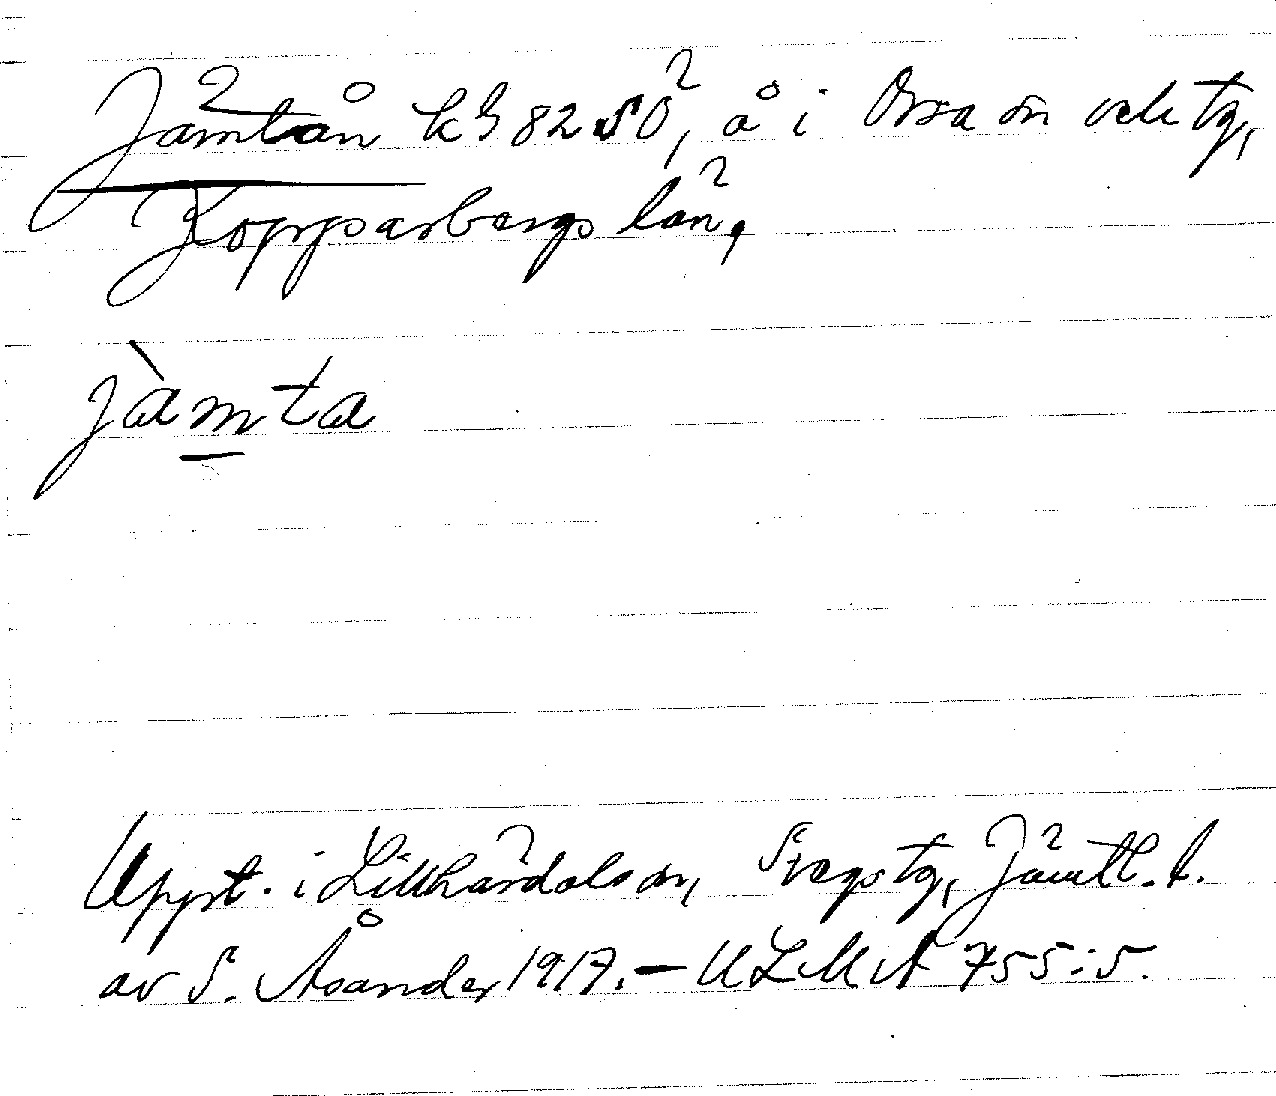 Jämtån kb 82 SO, å i Orsa sn och tg,
Kopparbergs län,
jàmta
Uppt. i Lillhärdals sn, Svegs tg, Jämtl. l.
av S. Åsander 1917. — ULMA 755:5.